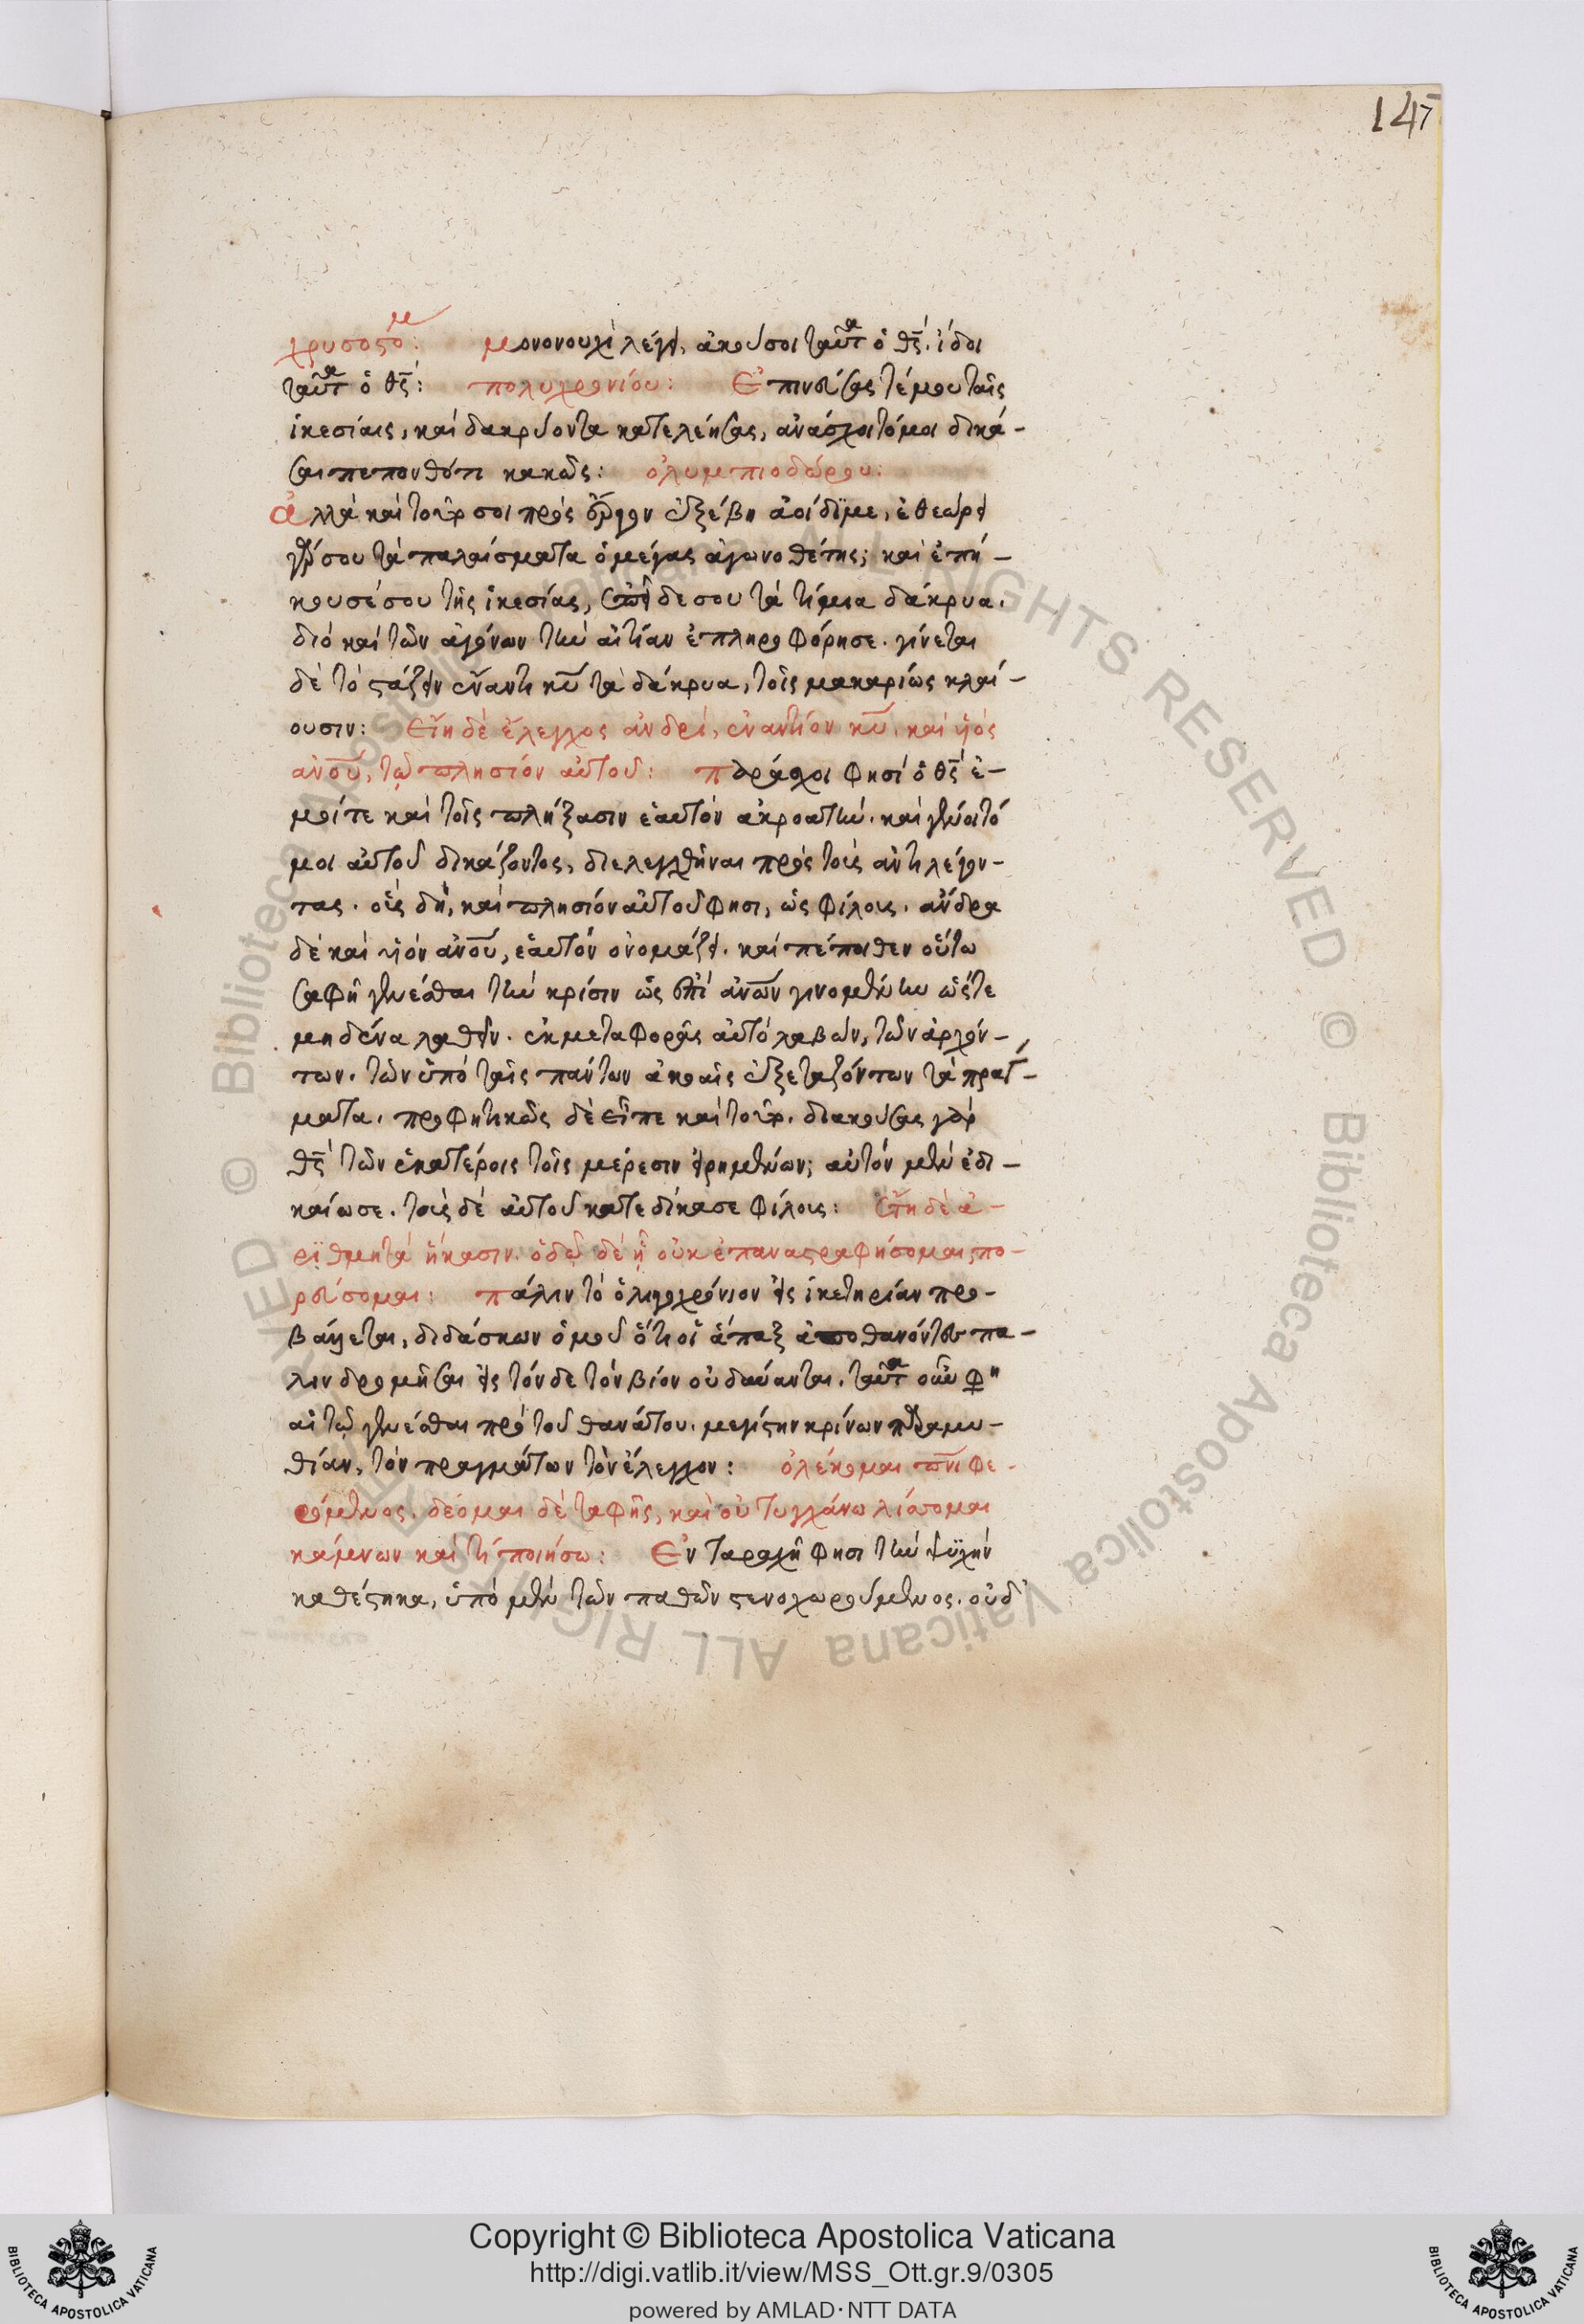 145
χρυσοστομ: μονονουχὶ λέγει, ἀκούσοι ταῦτα ὁ θς. ἴδοι
ταῦτα ὁ θς: πολυχρονίου: Ἐπινεύσας τέ μου ταῖς
ἱκεσίαις, καὶ δακρύοντα κατελεήσας, ἀνάσχοιτό μοι δικά-
σαι πεπονθότι κακῶς: ὀλυμπιοδώρου:
ἀλλὰ καὶ τοῦτό σοι πρὸς ἔργον ἐξέβη ἀοίδϊμε, ἐθεώρει
γάρ σου τὰ παλαίσματα ὁ μέγας ἀγωνοθέτης; καὶ ἐπή-
κουσέ σου τῆς ἱκεσίας, εἶδε σου τὰ τίμια δάκρυα.
διὸ καὶ τῶν ἀγώνων τὴν αἰτίαν ἐπληροφόρησε. γίνεται
δὲ τὸ στάζειν ἔναντι κυ τὰ δάκρυα, τοῖς μακαρίως κλαί-
ουσιν: Εἴη δὲ ἔλεγχος ἀνδρὶ, ἐναντίον κυ, καὶ υἱὸς
ἀνου, τῷ πλησίον αὐτοῦ: παράσχοι φησὶ ὁ θς ἐ-
μοί τε καὶ τοῖς πλήξασιν ἑαυτὸν ἀκροατὴν. καὶ γένοιτό
μοι αὐτοῦ δικάζοντος, διελεγχθῆναι πρὸς τοὺς ἀντιλέγον-
τας. οὓς δὴ, καὶ πλησίον αὐτοῦ φησι, ὡς φίλους. ἄνδρα
δὲ καὶ υἱὸν ἀνου, ἑαυτὸν ὀνομάζει. καὶ πέποιθεν οὕτω
σαφῆ γενέσθαι τὴν κρίσιν ὡς ἐπὶ ἀνων γινομένην ὥστε
μηδένα λαθεῖν. ἐκ μεταφορᾶς αὐτὸ λαβὼν, τῶν ἀρχόν-
των. τῶν ὑπὸ ταῖς πάντων ἀκοαῖς ἐξεταζόντων τὰ πράγ-
ματα. προφητικῶς δὲ εἶπε καὶ τοῦτο. διακούσας γὰρ
θς τῶν ἑκατέροις τοῖς μέρεσιν εἰρημένων; αὐτὸν μὲν ἐδι-
καίωσε. τοὺς δὲ αὐτοῦ κατεδίκασε φίλους: Ἔτη δὲ ἀ-
ρϊθμητὰ ἥκασιν. ὁδῷ δὲ ᾗ οὐκ ἐπαναστραφήσομαι, πο-
ρεύσομαι: πάλιν τὸ ὀλιγοχρόνιον εἰς ἱκετηρίαν προ-
βάλλεται, διδάσκων ὁμοῦ ὅτι οἱ ἅπαξ ἀποθανόντες πα-
λινδρομῆσαι εἰς τόνδε τὸν βίον οὐ δύνανται. ταῦτα οὖν φη
αἰτῶ γενέσθαι πρὸ τοῦ θανάτου. μεγίστην κρίνων παραμυ-
θίαν, τὸν πραγμάτων τὸν ἔλεγχον: ὀλέκομαι πνι φε-
ρόμενος. δέομαι δὲ ταφῆς, καὶ οὐ τυγχάνω λίσσομαι
κάμνων καὶ τί ποιήσω: Ἐν ταραχῇ φησι τὴν ψϋχὴν
καθέστηκα, ὑπὸ μὲν τῶν παθῶν στενοχωρούμενος. οὐδ
Copyright © Biblioteca Apostolica Vaticana
http://digi.vatlib.it/view/MSS_Ott.gr.9/0305
powered by AMLAD·NTT DATA
BIBLIOTECA APOSTOLICA VATICANA
BIBLIOTECA APOSTOLICA VATICANA
© Biblioteca Apostolica Vaticana ALL RIGHTS RESERVED
© Biblioteca Apostolica Vaticana ALL RIGHTS RESERVED